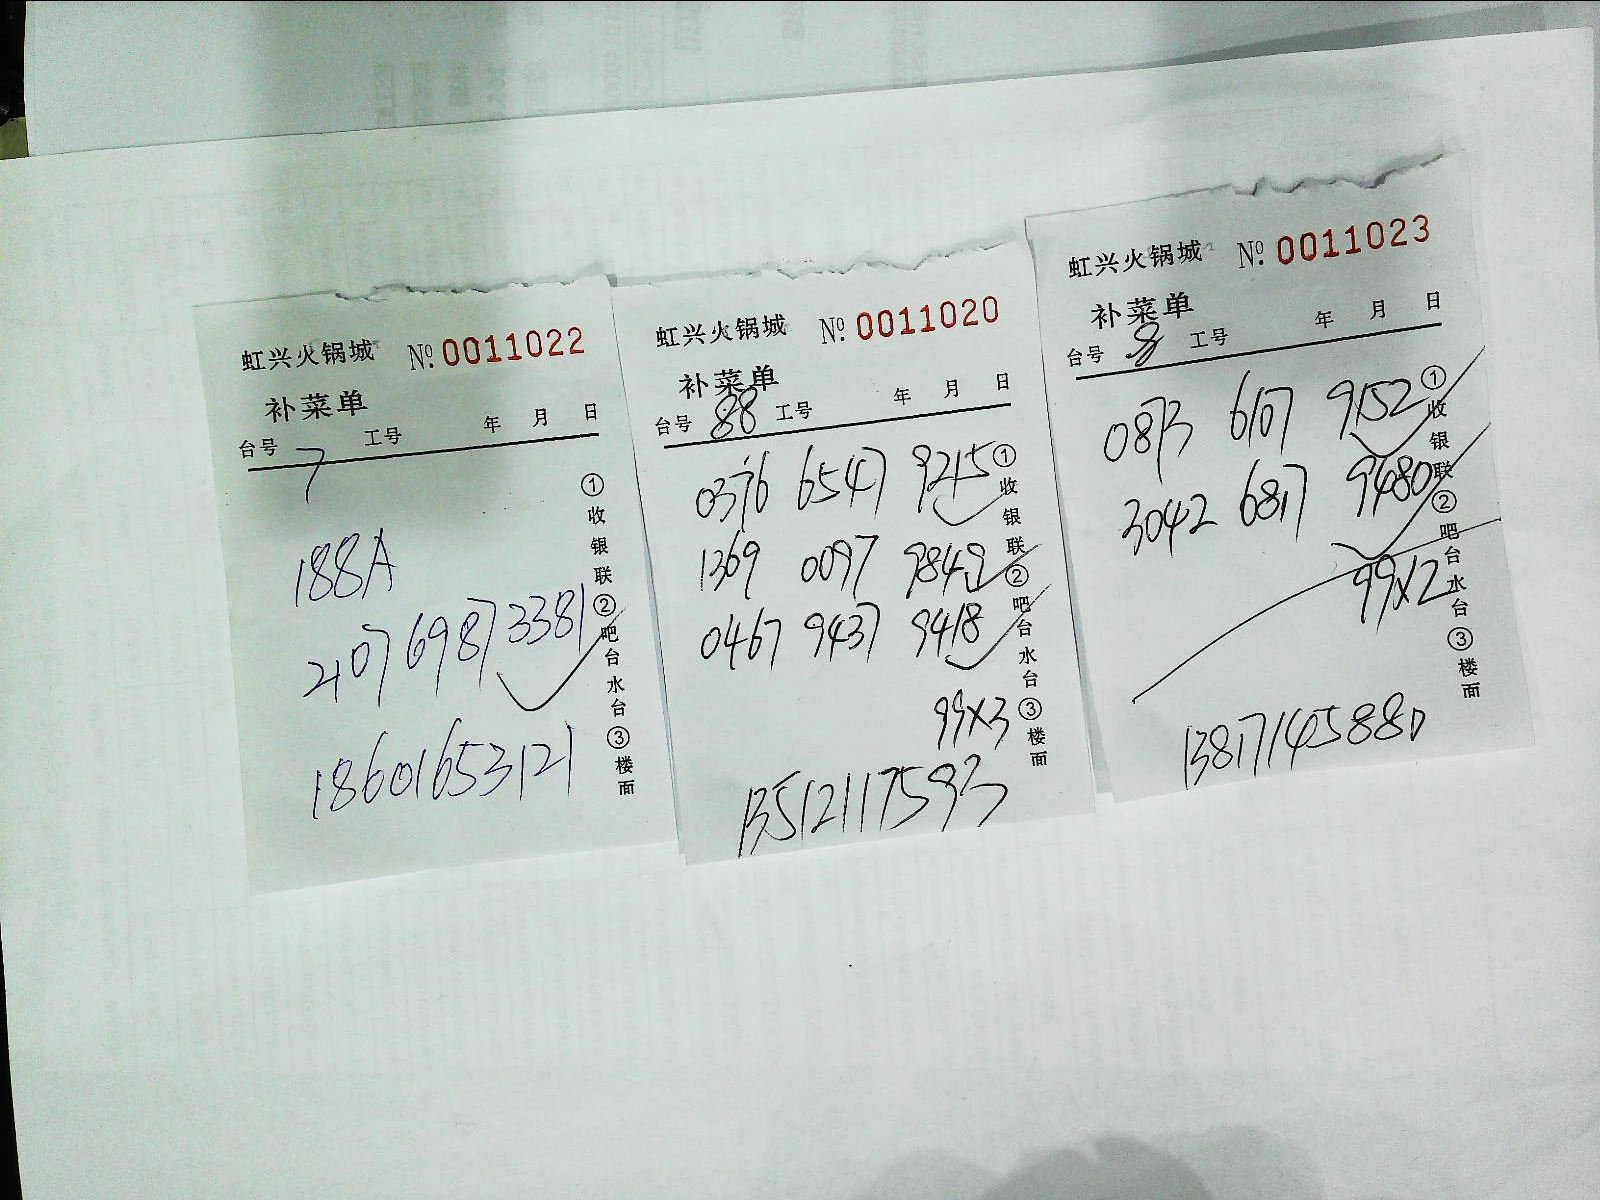 虹兴火锅城 № 0011022
补菜单
台号 7 工号 年 月 日
188A
2107 6987 3381
18601653121
①收银联②吧台水台③楼面
虹兴火锅城 № 0011020
补菜单
台号 88 工号 年 月 日
0376 6547 9215
1369 0097 9849
0467 9437 9418
99×3
13512117593
①收银联②吧台水台③楼面
虹兴火锅城 № 0011023
补菜单
台号 8 工号 年 月 日
0873 6107 9152
3042 6817 9480
99×2
13817145880
①收银联②吧台水台③楼面